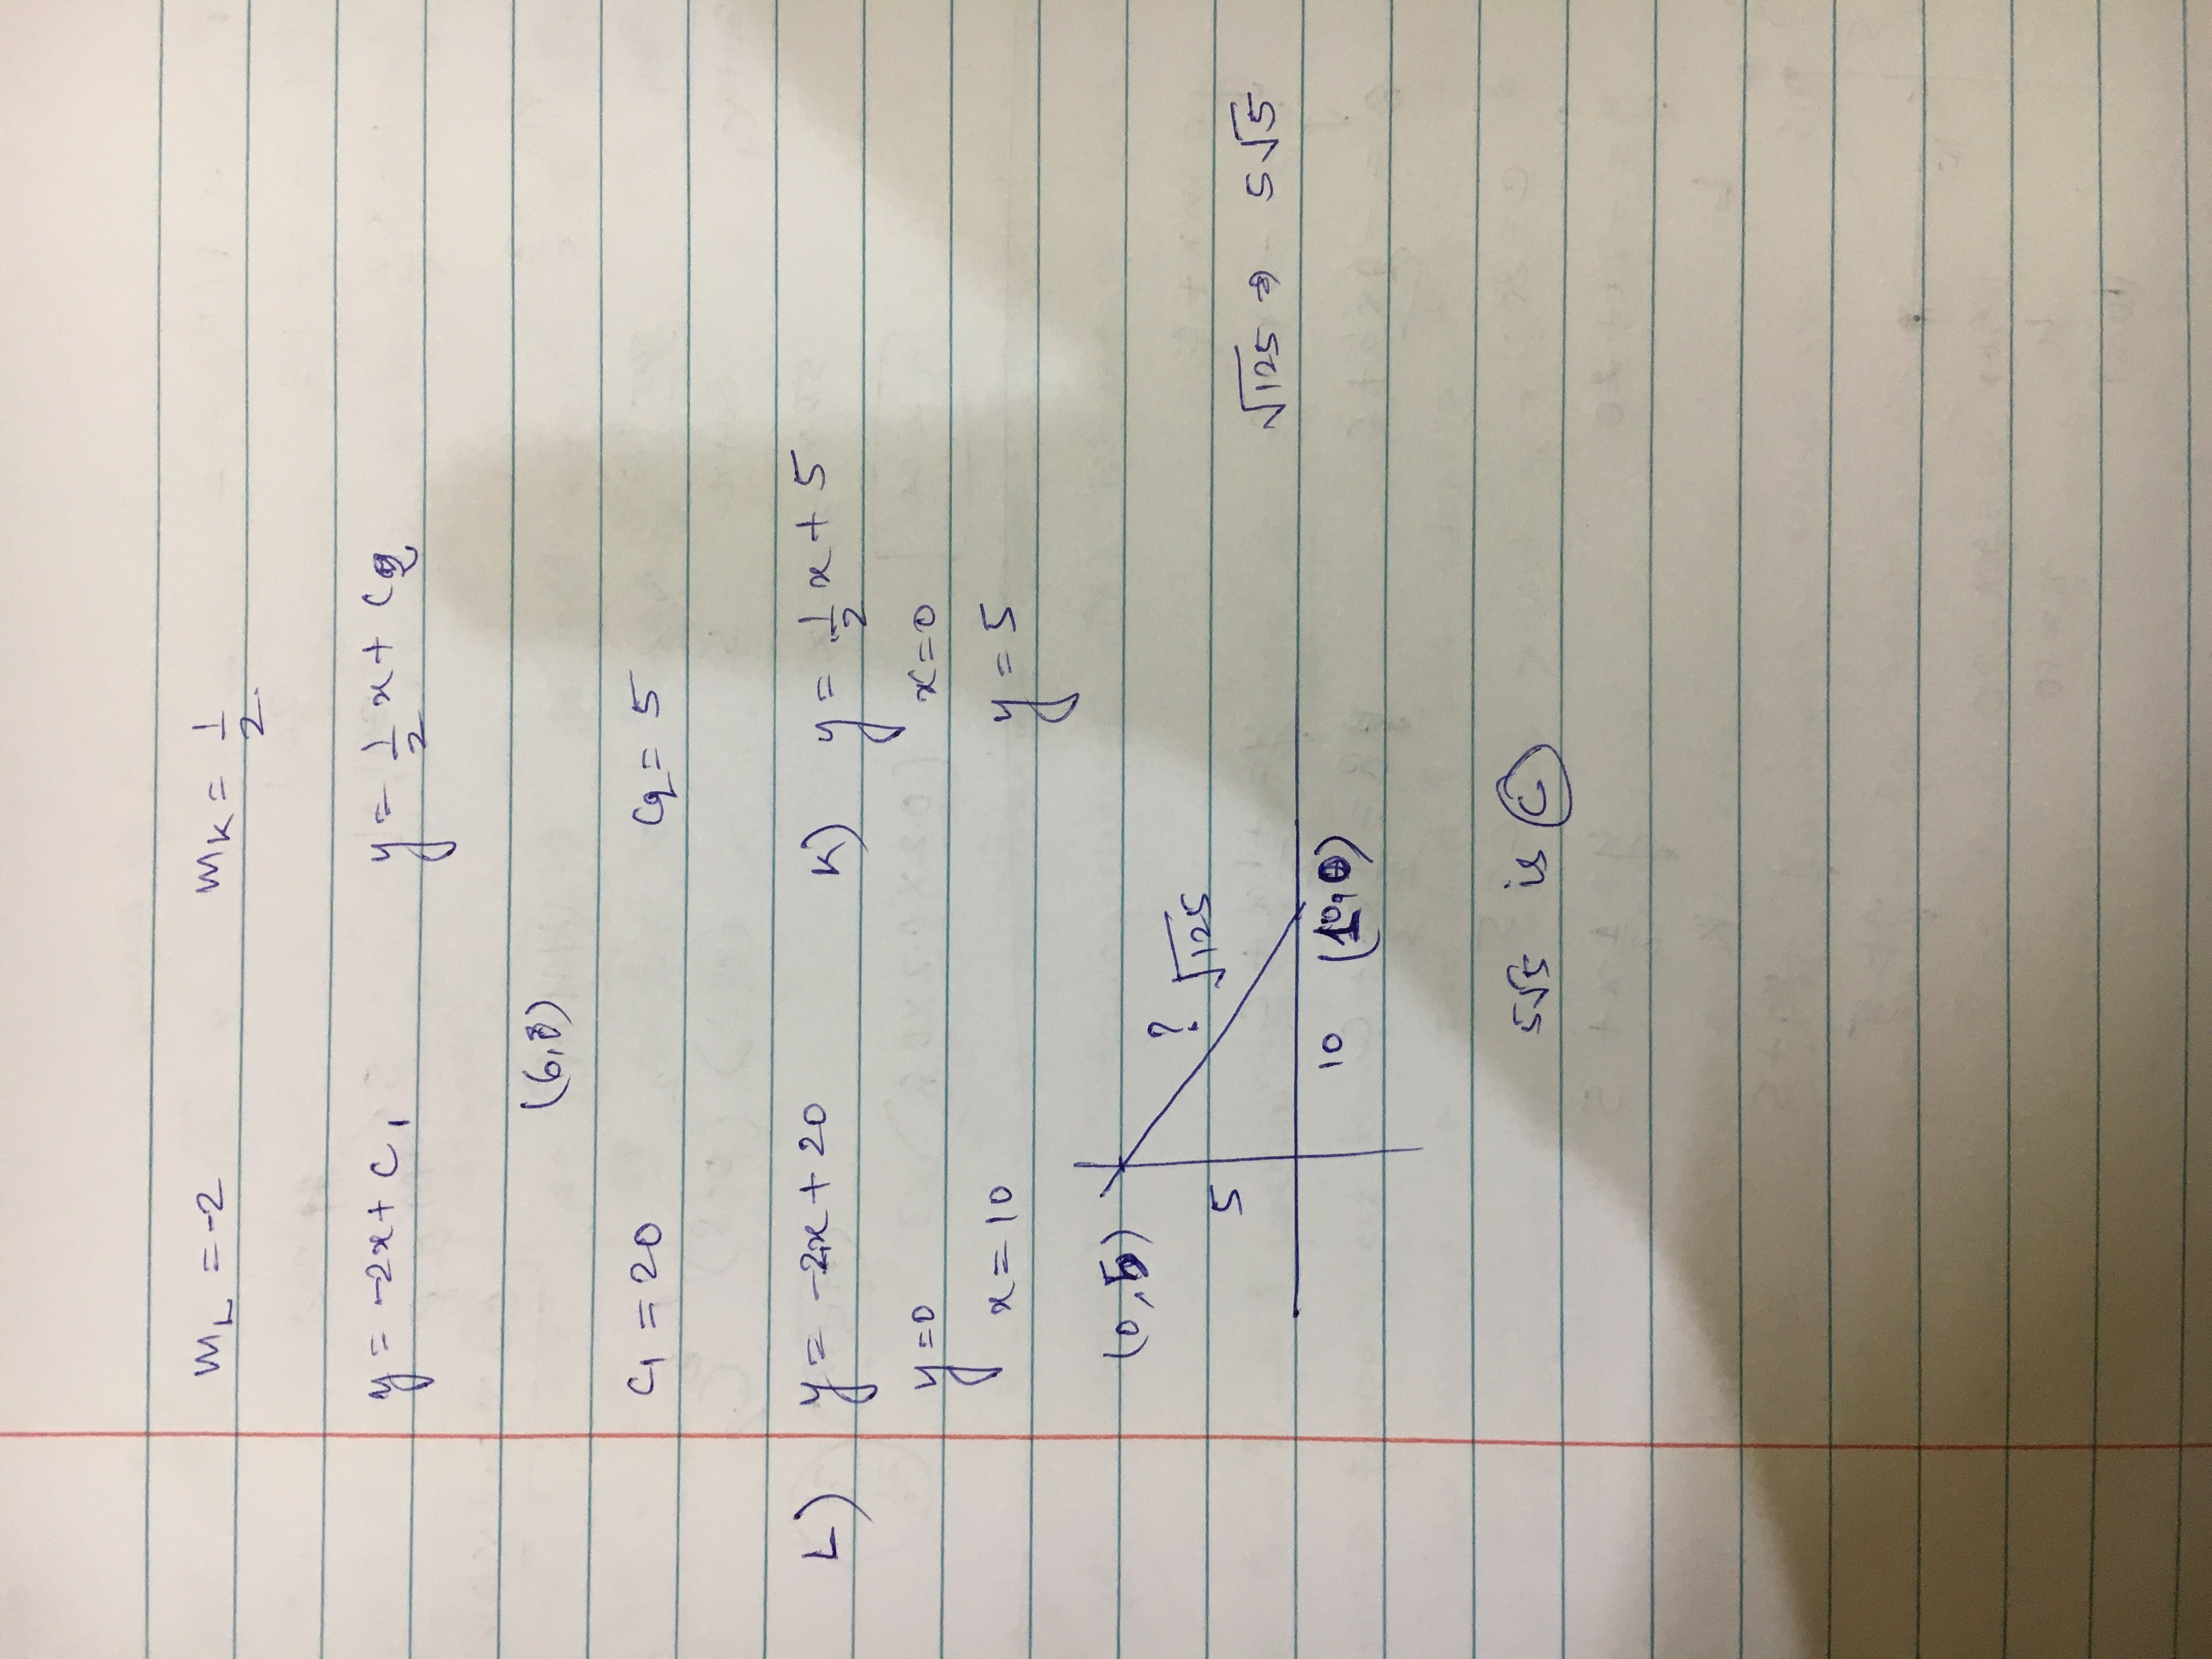 m_L = -2 m_K = 1/2
y = -2x + c_1 y = 1/2 x + c_2
(6,8)
c_1 = 20 c_2 = 5
L) y = -2x + 20 K) y = 1/2 x + 5
y = 0 x = 0
x = 10 y = 5
(0,5) ? √125
5 √125 → 5√5
10 (10,0)
5√5 is C